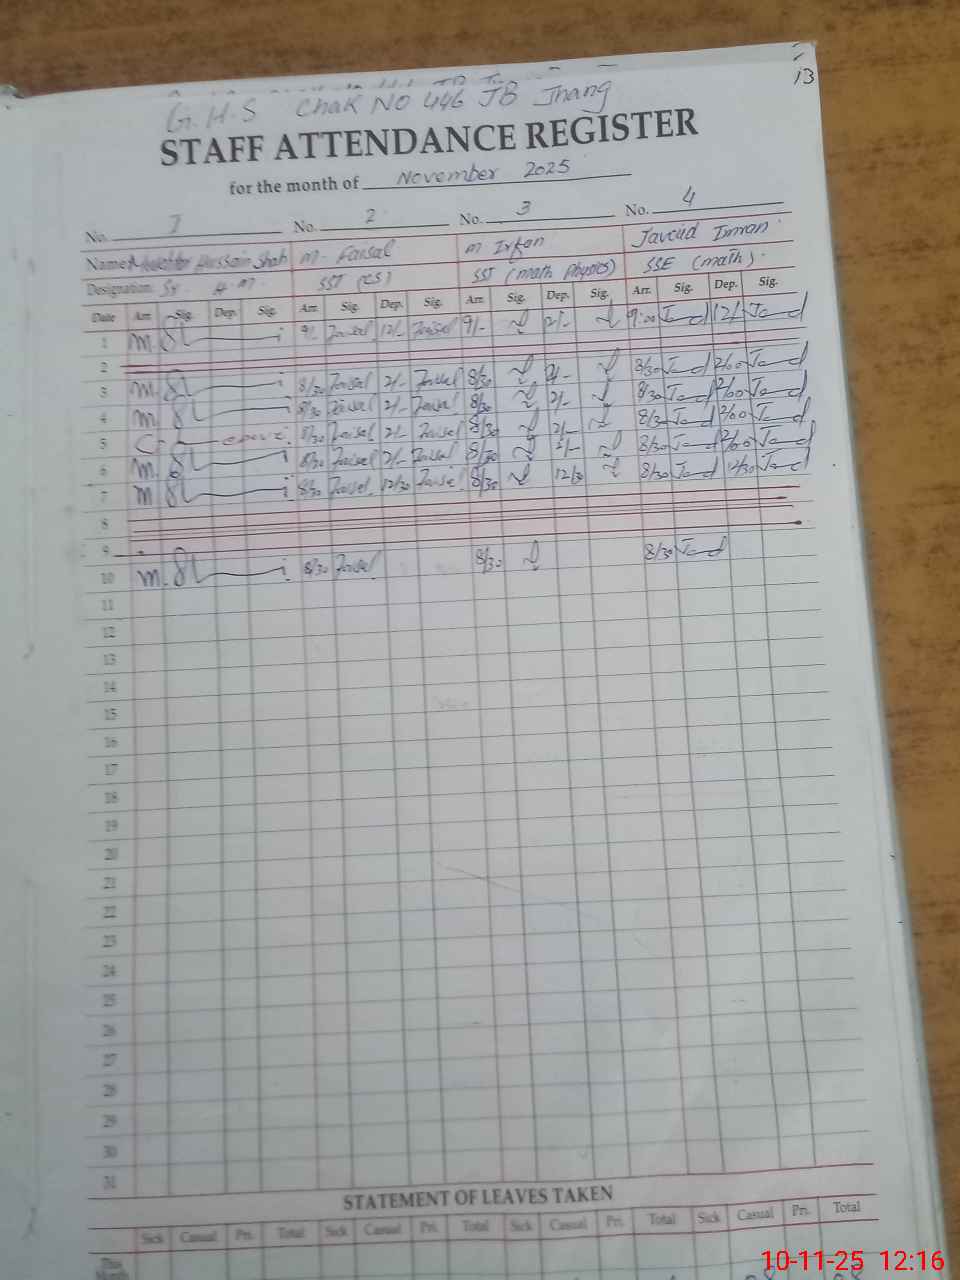 13
G.H.S Chak NO 446 JB Jhang
STAFF ATTENDANCE REGISTER
for the month of November 2025
No. 1 No. 2 No. 3 No. 4
Name Hussain Shah M. Faisal M Irfan Javeid Imran
Designation Sr. H.M. SST (CS) SST (math Physics) SSE (math).
Date Arr. Sig. Dep. Sig. Arr. Sig. Dep. Sig. Arr. Sig. Dep. Sig. Arr. Sig. Dep. Sig.
1 9/- Faisal 12/- Faisal 9/- 9:00 12/-
2
3 8/30 Faisal 2/- Faisal 8/30 2/- 8/30 2/00
4 8/30 Faisal 2/- Faisal 8/30 2/- 8/30 2/00
5 8/30 Faisal 2/- Faisal 8/30 2/- 8/3 2/00
6 8/30 Faisal 2/- Faisal 8/30 2/- 8/30 2/00
7 8/30 Faisal 12/30 Faisal 8/30 12/30 8/30 12/30
8
9
10 8/30 Faisal 8/30 8/30
11
12
13
14
15
16
17
18
19
20
21
22
23
24
25
26
27
28
29
30
31
STATEMENT OF LEAVES TAKEN
Sick Casual Pri. Total Sick Casual Pri. Total Sick Casual Pri. Total Sick Casual Pri. Total
This Month
10-11-25 12:16